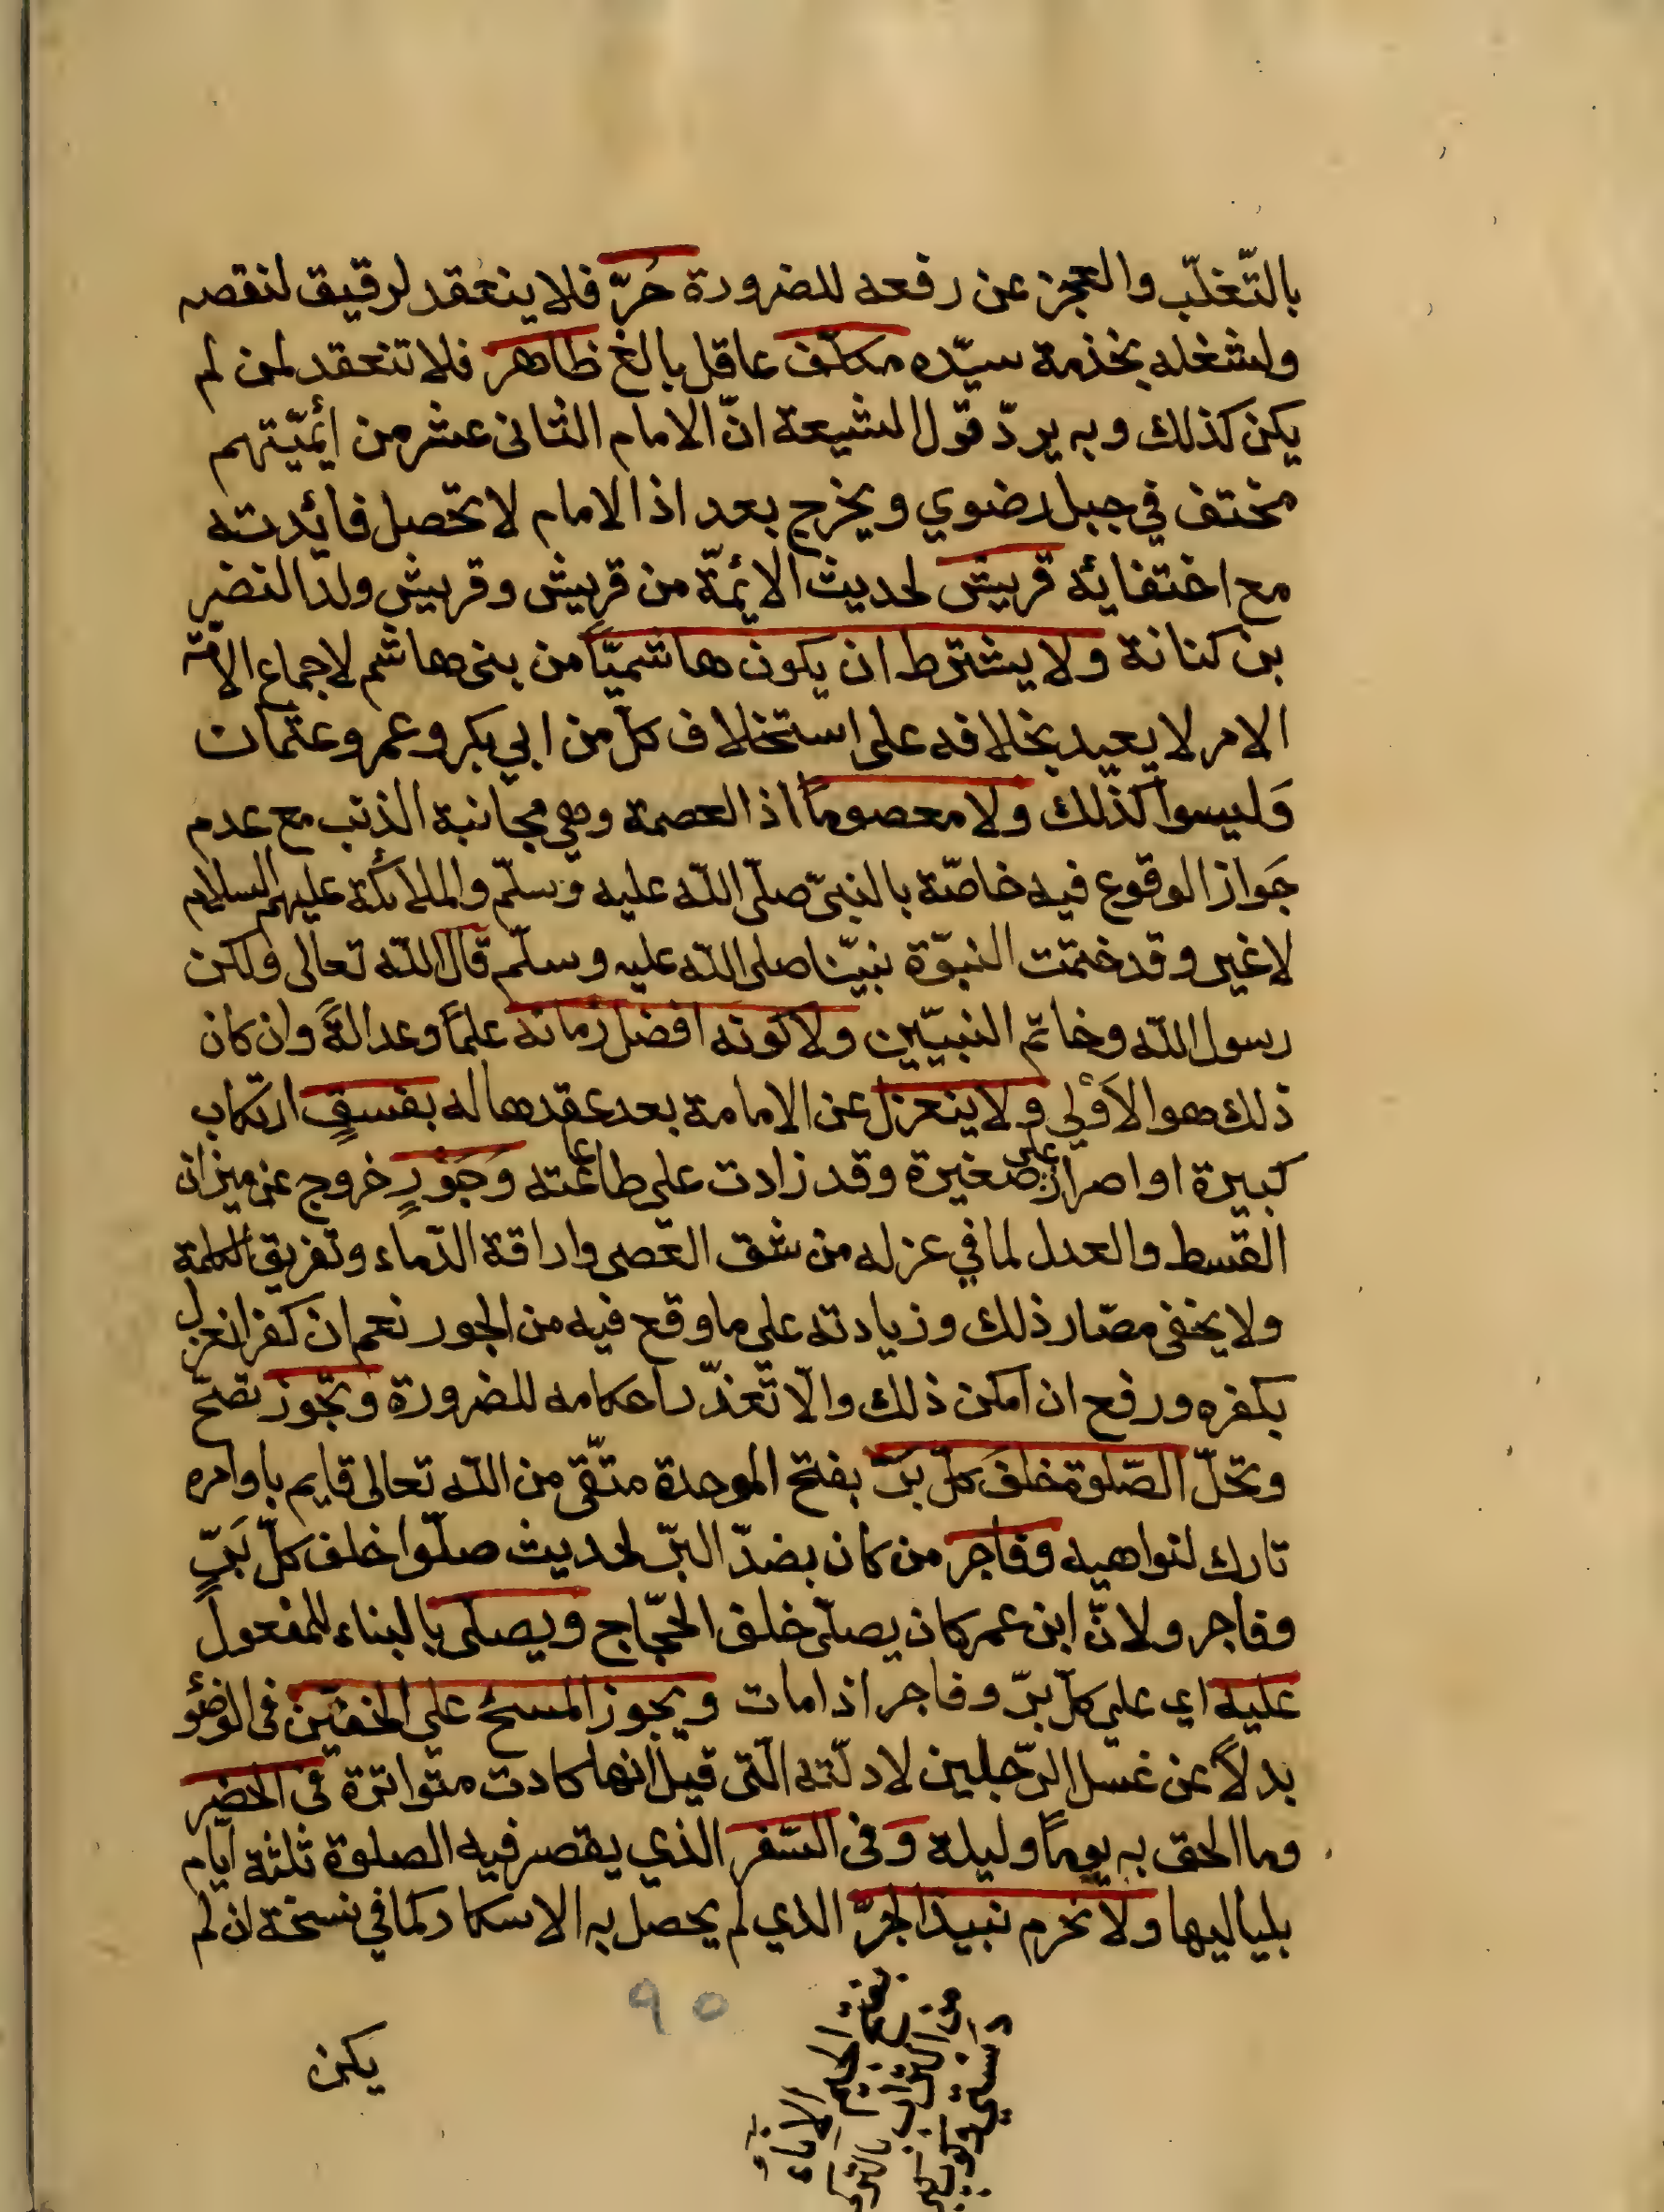 بالتّغلّب والعجز عن رفعه للضرورة حُرّ فلا ينعقد لرقيق لنقصه
ولشغله بخذمة سيّده مكلّف عاقل بالغ ظاهر فلا تنعقد لمن لم
يكن كذلك وبه يردّ قول الشيعة انّ الامام الثانى عشر من أئميّتهم
مختف في جبل رضوي ويخرج بعد اذ الامام لا تحصل فائدته
مع اختفائه قريش لحديث الائمّة من قريش وقريش ولد النضر
بن كنانة ولا يشترط ان يكون هاشميّا من بنى هاشم لاجماع الامّة
الامر لا يعيد بخلافه على استخلاف كلّ من ابي بكر وعمر وعثمان
وَليسوا كذلك ولا معصوماً اذ العصمة وهي مجانبة الذنب مع عدم
جَواز الوقوع فيه خاصّة بالنبىّ صلّى اللّه عليه وسلّم والملائكة عليهم السلام
لا غير وقد ختمت النبوّة نبيّنا صلى اللّه عليه وسلّم قال اللّه تعالى ولكن
رسول اللّه وخاتم النبيّين ولا كونه افضل زمانه علماً وعدالةً وان كان
ذلك هو الاَوْلى ولا ينعزل عن الامامة بعد عقدها له بفسقٍ ارتكاب
كبيرة او اصرار على صغيرة وقد زادت على طاعته وَجَوْرٍ خروج عن ميزان
القسط والعدل لما في عزله من شق العصى واراقة الدّماء وتفريق الكلمة
ولا يخفى مضار ذلك وزيادته على ما وقع فيه من الجور نعم ان كفر انعزل
بكفره ورفع ان امكن ذلك والّا تعذّر احكامه للضرورة وتجوز تصحّ
وتحلّ الصّلوة خلفَ كلّ بَرّ بفتح الموحدة متّقى من اللّه تعالى قايم باوامره
تارك لنواهيه وفاجر من كان بضدّ البرّ لحديث صلّوا خلف كلّ بَرٍّ
وفاجر ولانّ ابن عمر كان يصلّى خلف الحجّاج ويصلى بالبناء للمفعول
عليه اي على كلّ برّ وفاجر اذا مات ويجوز المسح على الخفّين فى الوضؤ
بدلاً عن غسل الرّجلين لادلّته الّتى قيل انها كادت متواترة فى الحضر
وما الحق به يوماً وليلة وفى السّفر الذي يقصر فيه الصلوة ثلثة ايّام
بلياليها ولا نحرم نبيذ الجرّ الذي لم يحصل به الاسكار كما في نسخة ان لم
٩٥
يكن